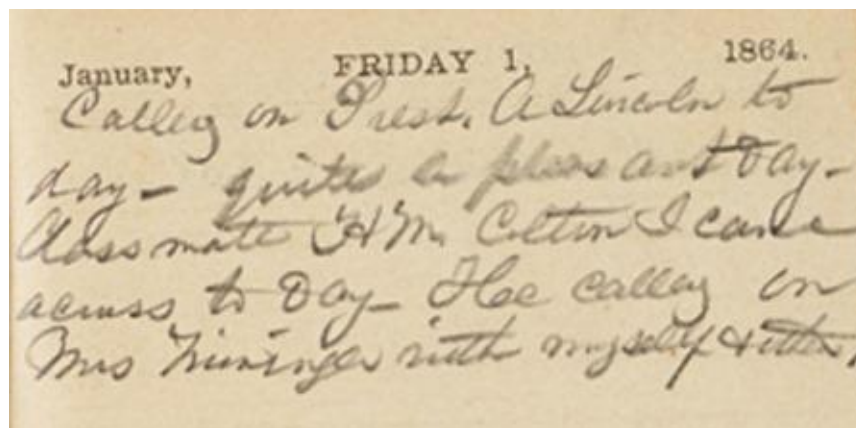 January, FRIDAY 1, 1864.
Called on Prest. A Lincoln to
day - quite a pleasant Day -
Classmate H M. Colton I came
across to Day - Hee called on
Mrs with myself & others,